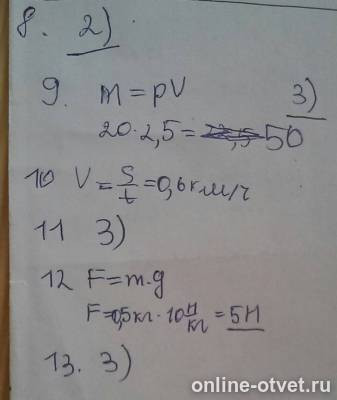 8. 2)
9. m = pV 3)
20·2,5 = 50
10 V = S/t = 0,6км/ч
11 3)
12 F = m·g
F = 0,5кг · 10 Н/кг = 5Н
13. 3)
online-otvet.ru